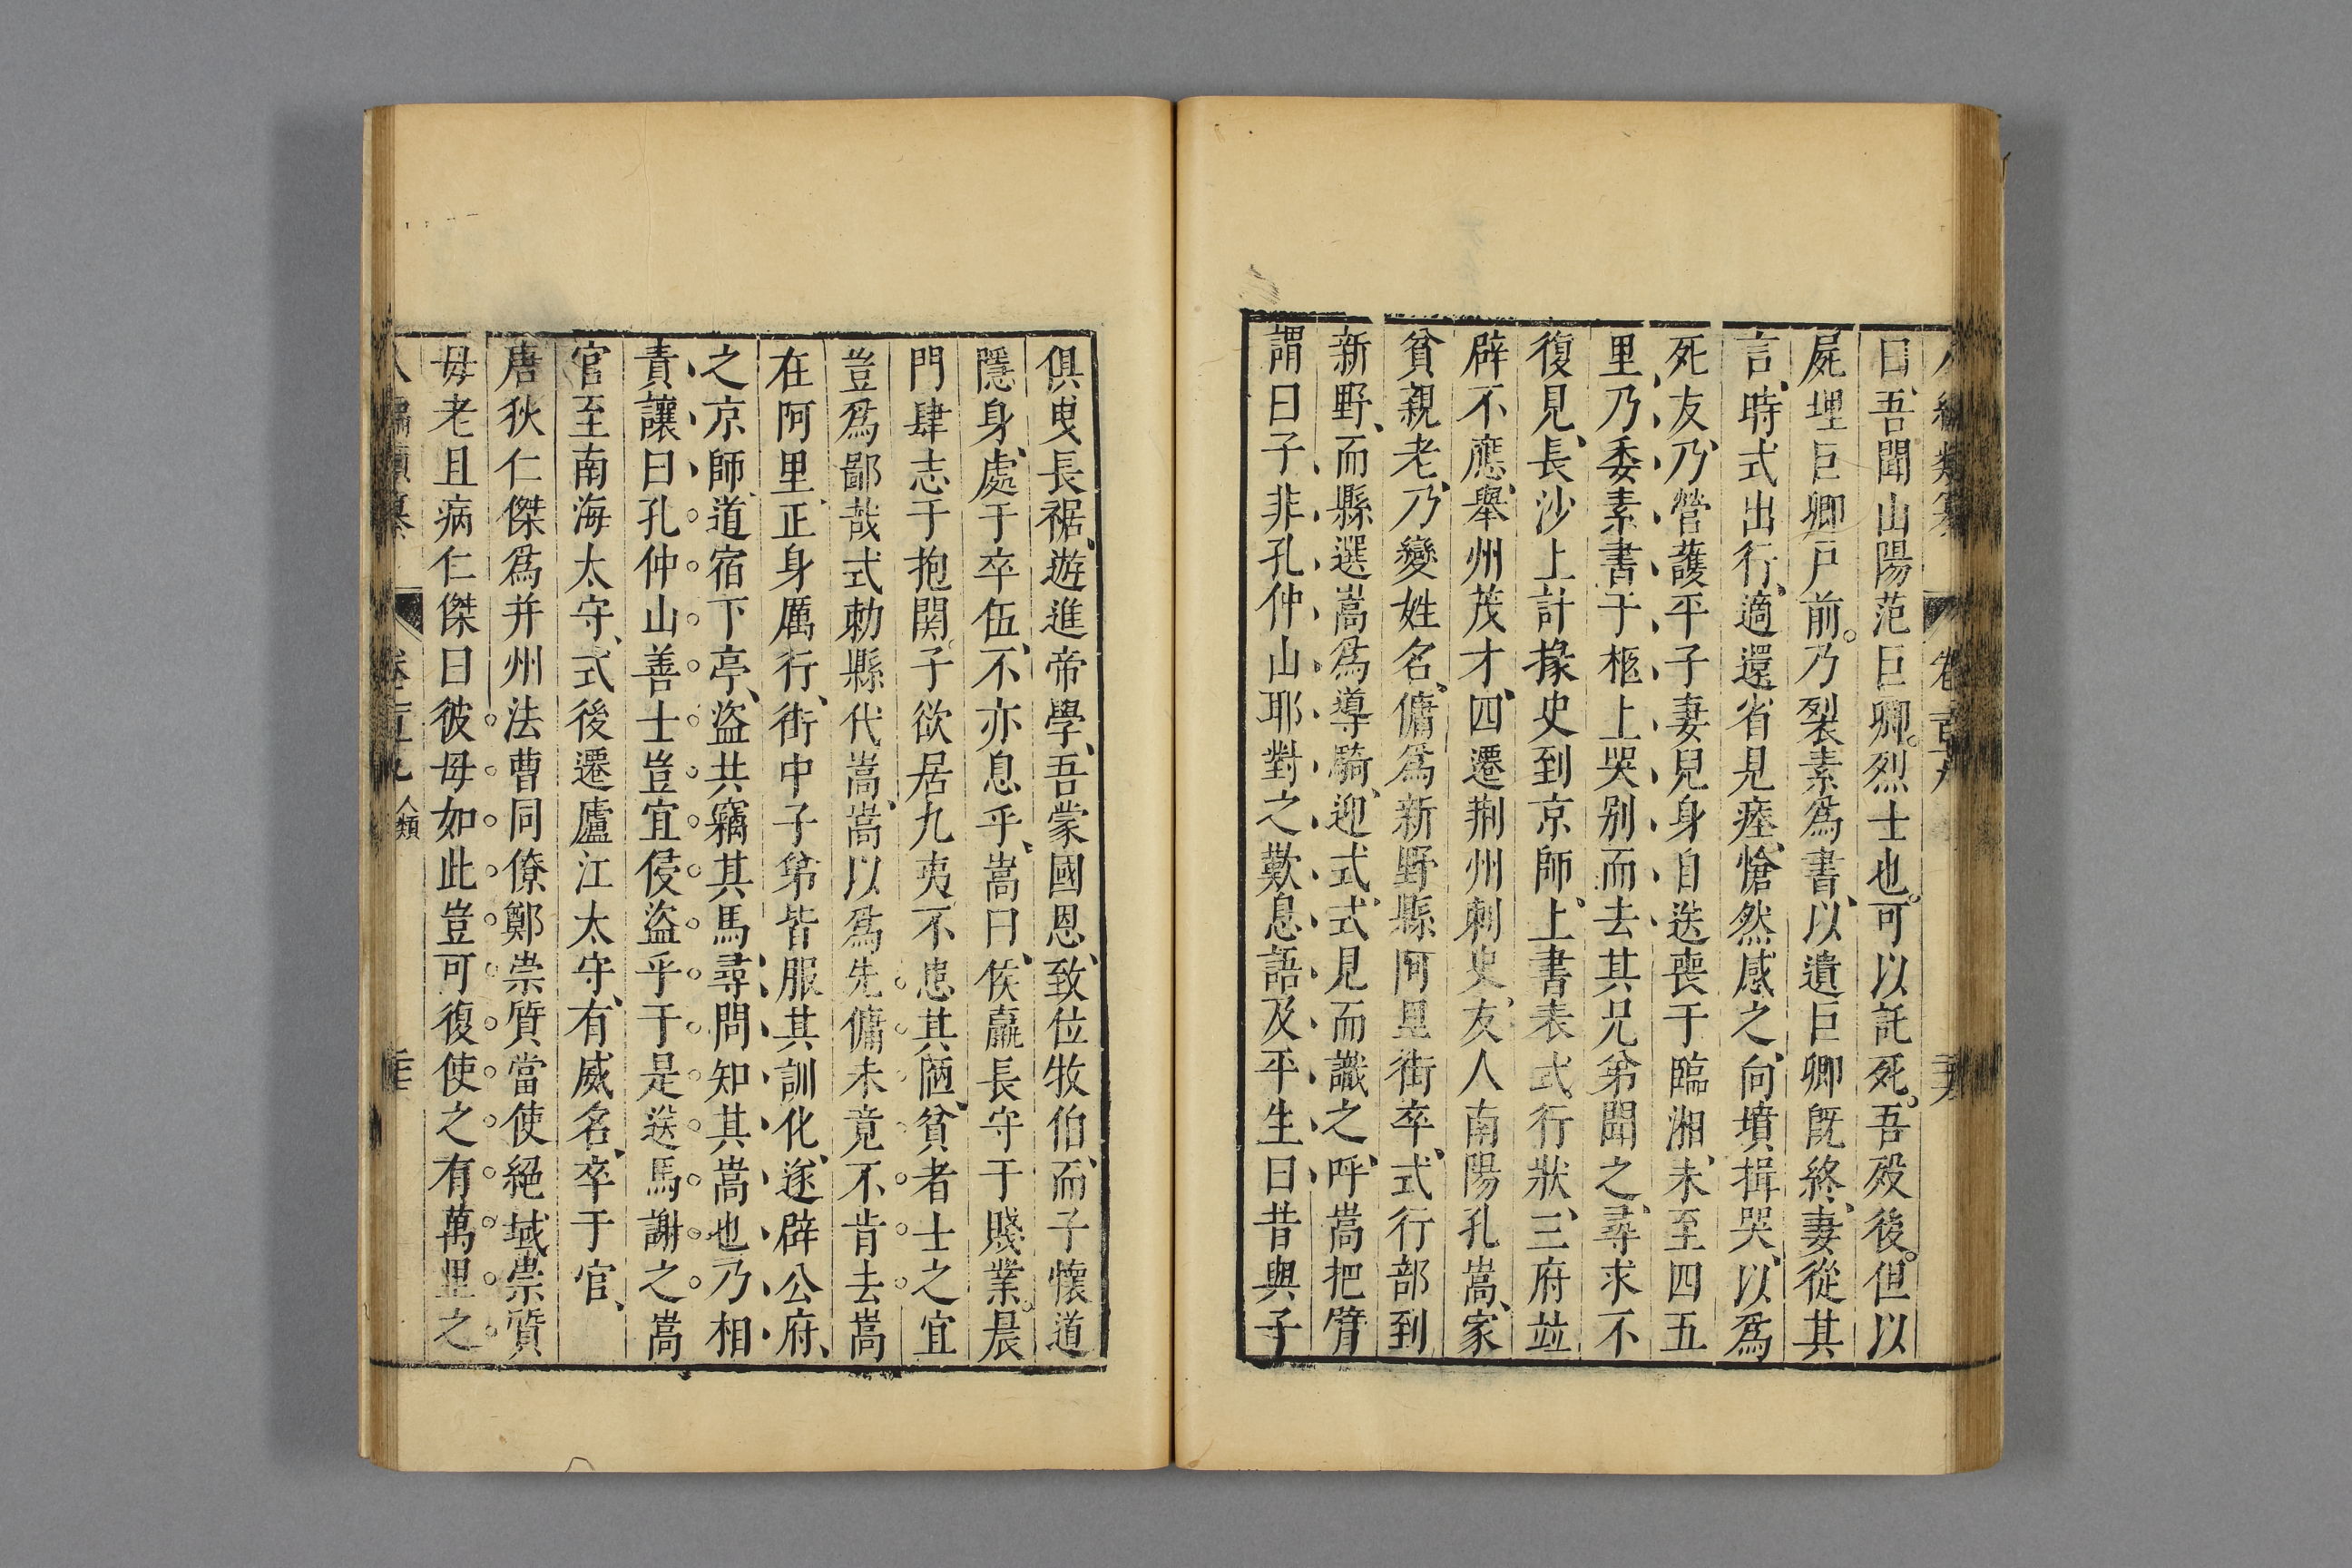 曰吾聞山陽范巨卿烈士也可以託死吾歿後但以
屍埋巨卿戸前乃裂素爲書以遺巨卿旣終妻從其
言時式出行適還省見瘞愴然感之向墳揖哭以爲
死友乃營護平子妻兒身自送喪于臨湘未至四五
里乃委素書于柩上哭别而去其兄弟聞之尋求不
復見長沙上計掾史到京師上書表式行狀三府竝
辟不應舉州茂才四遷荆州刺史友人南陽孔嵩家
貧親老乃變姓名傭爲新野縣阿里街卒式行部到
新野而縣選嵩爲導騎迎式式見而識之呼嵩把臂
謂曰子非孔仲山耶對之歎息語及平生曰昔與子
俱曳長裾遊進帝學吾蒙國恩致位牧伯而子懷道
隱身處于卒伍不亦息乎嵩曰侯嬴長守于賤業晨
門肆志于抱関子欲居九夷不患其陋貧者士之宜
豈爲鄙哉式勅縣代嵩嵩以爲先傭未竟不肯去嵩
在阿里正身厲行街中子弟皆服其訓化遂辟公府
之京師道宿下亭盜共竊其馬尋問知其嵩也乃相
責讓曰孔仲山善士豈宜侵盜乎于是送馬謝之嵩
官至南海太守式後遷廬江太守有威名卒于官
唐狄仁傑爲并州法曹同僚鄭崇質當使絕域崇質
母老且病仁傑曰彼母如此豈可復使之有萬里之
人類